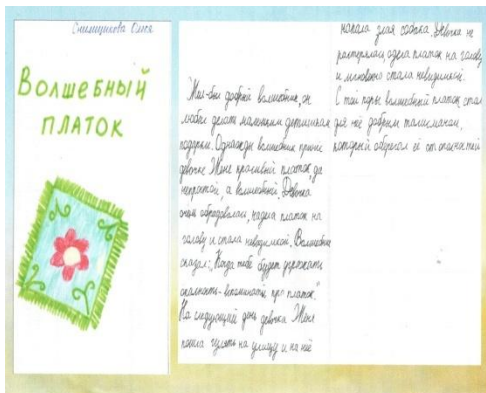 Слимщикова Олеся
Волшебный
платок
Жил-был добрый волшебник, он
любил делать маленьким детишкам
подарки. Однажды волшебник принёс
девочке Жене красивый платок, да
непростой, а волшебный. Девочка
очень обрадовалась, надела платок на
голову и стала невидимкой. Волшебник
сказал: „Когда тебе будет угрожать
опасность - вспоминай про платок."
На следующий день девочка Женя
пошла гулять на улицу и на неё
напала злая собака. Девочка не
растерялась одела платок на голову
и мгновенно стала невидимкой.
С той поры волшебный платок стал
для неё добрым талисманом,
который оберегал её от опасностей